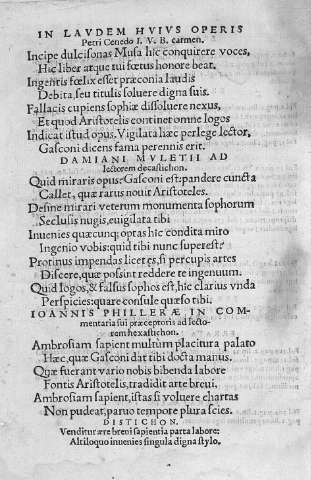 IN LAVDEM HVIVS OPERIS
Petri Cenedo I. V. B. carmen.
Incipe dulcisonas Musa hîc conquirere voces,
Hic liber atque tui fœtus honore beat.
Ingentis fœlix est præconia laudis
Debita, seu titulis soluere digna suis.
Fallacis cupiens sophiæ dissoluere nexus,
Et quod Aristotelis continet omne logos
Indicat istud opus. Vigilata hæc perlege lector,
Gasconi dicens fama perennis erit.
DAMIANI MVLETII AD
lectorem decastichon.
Quid miraris opus? Gasconi est: pandere cuncta
Callet, quæ rarus nouit Aristoteles.
Desine mirari veterum monumenta sophorum
Seclusis nugis, euigilata tibi
Inuenies quæcunq; optas hîc condita miro
Ingenio vobis: quid tibi nunc superest?
Protinus impendas licet es, si percupis artes
Discere, quæ possint reddere te ingenuum.
Quid logos, & falsus sophos est, hîc clarius vnda
Perspicies: quare consule quæso tibi.
IOANNIS PHILLERÆ IN COM-
mentaria sui præceptoris ad lecto-
rem hexastichon.
Ambrosiam sapient multùm placitura palato
Hæc, quæ Gasconi dat tibi docta manus.
Quæ fuerant vario nobis bibenda labore
Fontis Aristotelis, tradidit arte breui.
Ambrosiam sapient, istas si voluere chartas
Non pudeat, paruo tempore plura scies.
DISTICHON.
Venditur ære breui sapientia parta labore:
Altiloquo inuenies singula digna stylo.